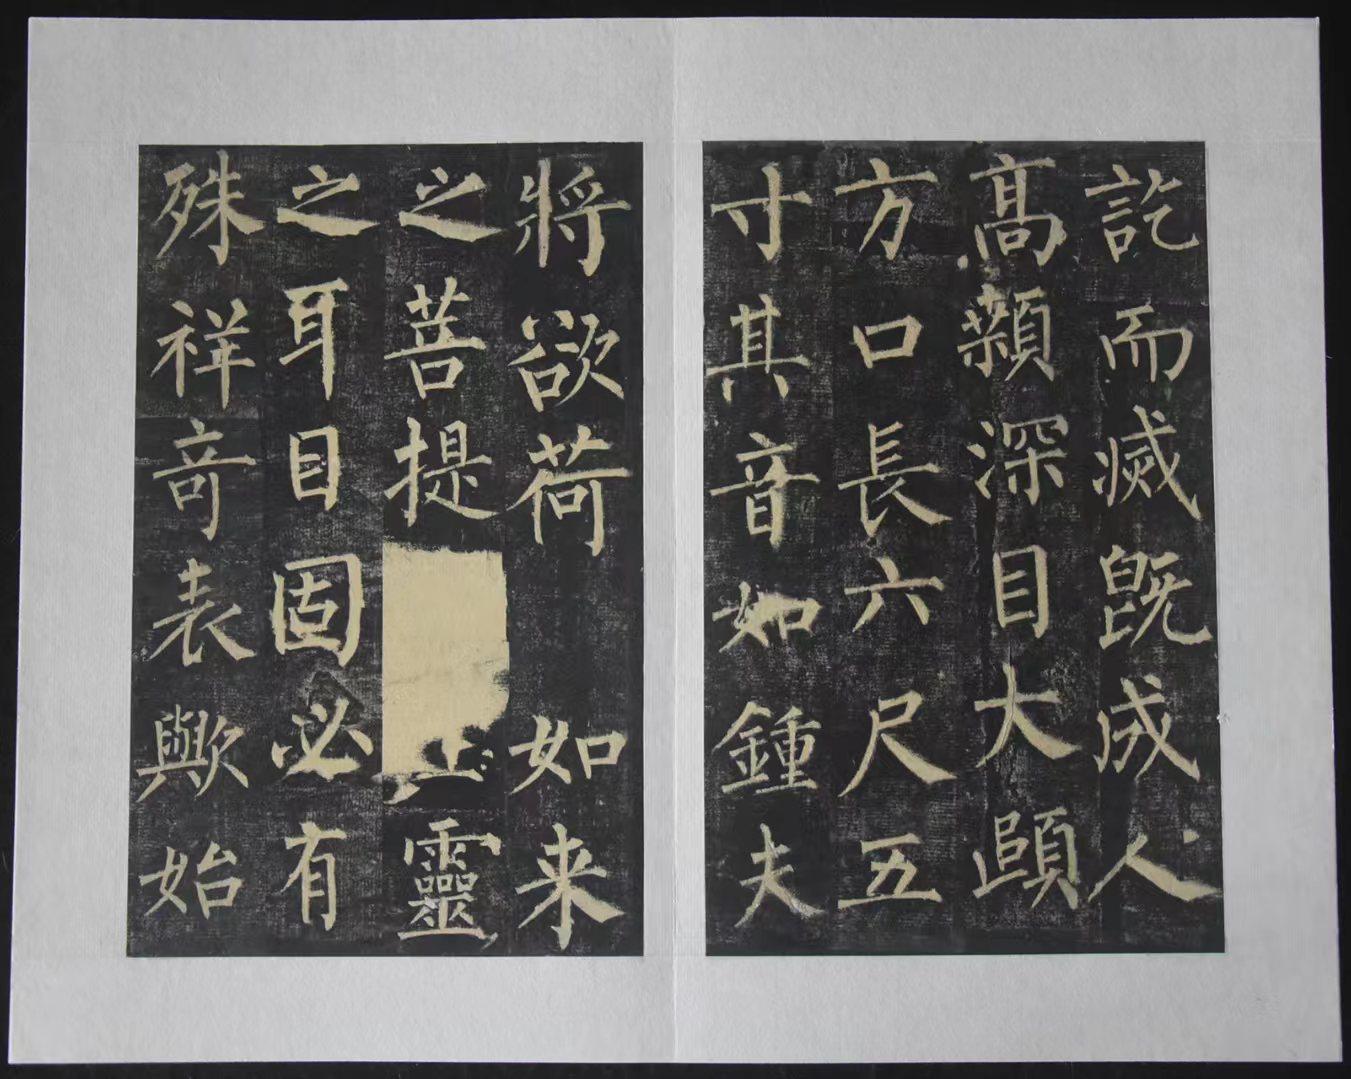 訖而滅既成人
高顙深目大頤
方口長六尺五
寸其音如鍾夫
將欲荷如来
之菩提靈
之耳目固必有
殊祥奇表歟始